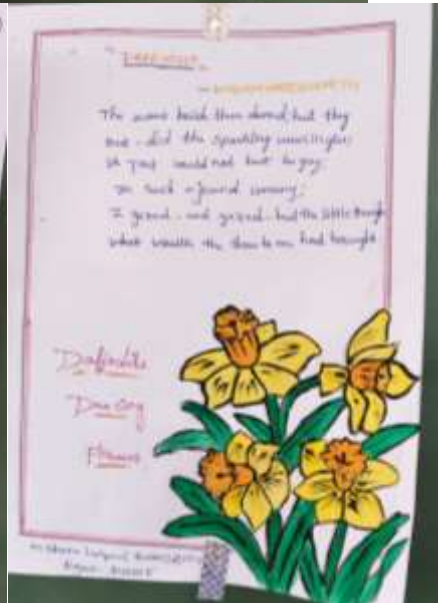 "Daffodils"
The waves beside them danced but they
out-did the sparkling waves in glee:
A poet could not but be gay,
in such a jocund company;
I gazed-and gazed-but the little thought
what wealth the show to me had brought
Daffodils
Dancing
Flowers